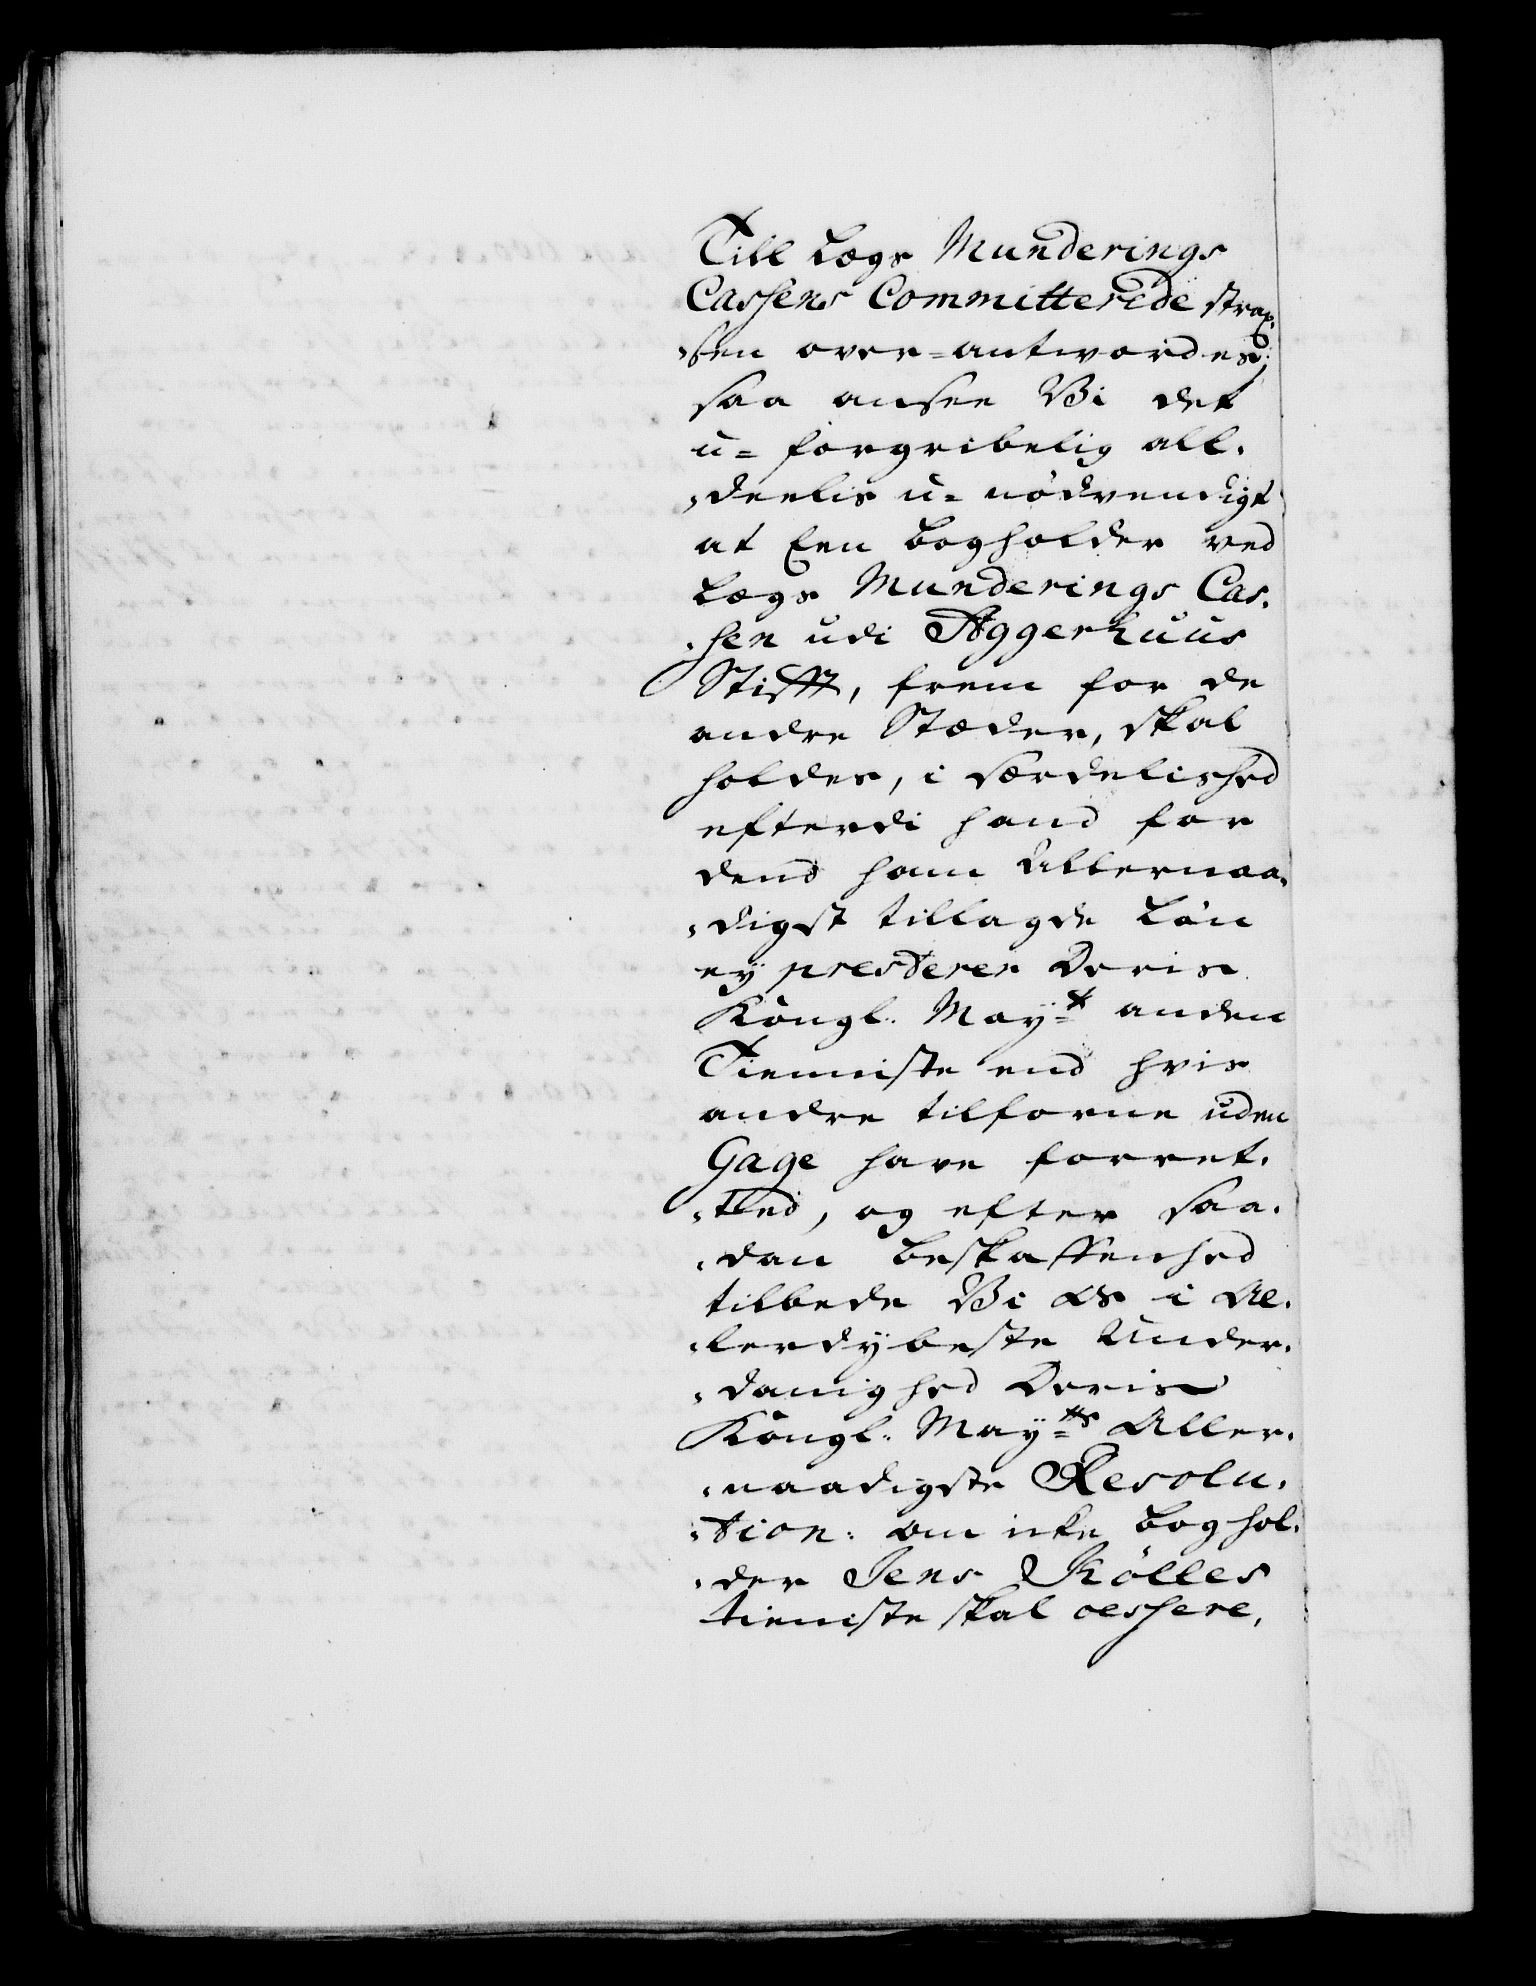 Till Legs Munderings
Cassens Committerede strax,
,sen over=antwordes;
saa ansee Vi det
u=forgribelig all,
,deelis u=nödvendigt
at Een bogholder ved
Legs Munderings Cas,
,sen udi Aggerhuus
Stifft, frem for de
andre Stæder, skal
holdes, i særdelished
efterdi hand for
dend ham Allernaa,
,digst tillagde Lön
ey præsterer Deris
Kongl. May:t anden
Tienniste end hvis
andre tilforne uden
Gage have forret,
,tted, og efter saa,
,dan beskaffenhed
tilbede Vi os i Al,
,lerdybeste Under,
,danighed Deris
Kongl. May:ts Aller,
,naadigste Resolu,
,tion: om icke boghol,
,der Jens Kölles
tieniste skal cessere,